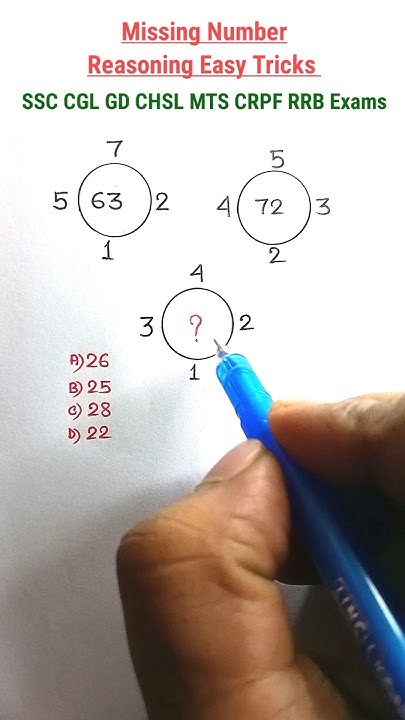 Missing Number
Reasoning Easy Tricks
SSC CGL GD CHSL MTS CRPF RRB Exams
7
5 63 2
1
5
4 72 3
2
4
3 ? 2
1
A) 26
B) 25
C) 28
D) 22